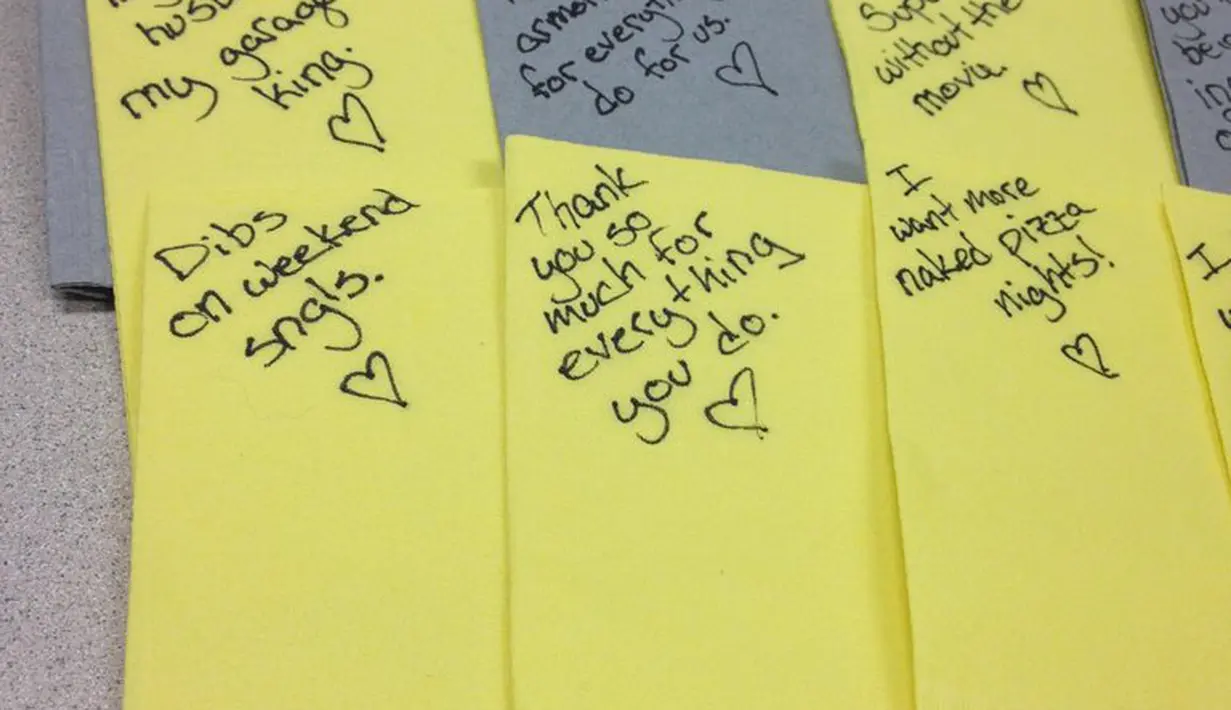 my garage
king.
for everyth
do for us.
without the
movie.
Dibs
on weekend
sngls.
Thank
you so
much for
everything
you do.
I
want more
naked pizza
nights!
I